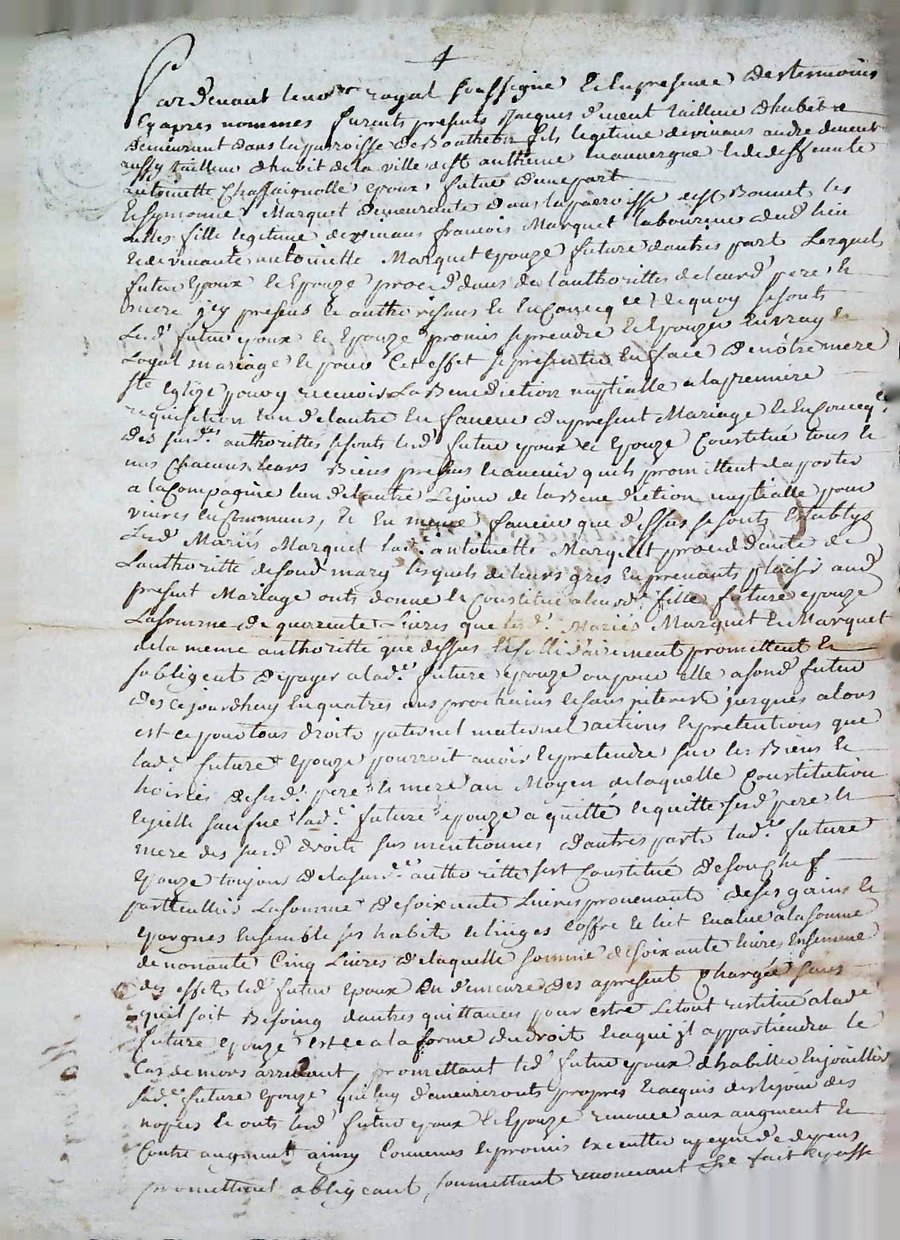 Pardevant le no.re royal soussigné et en presence des temoins
cy apres nommes furent presents Jacques dement tailleur dhabit
demeurant dans la parroisse de fils legitime de vivans andre dement
aussy tailleur dhabit de la ville de St antheme en auvergne et de deffeunte
antoinette Chassaignolle epoux futur dune part
Et Symonne Marquet demeurante dans la paroisse de St Bonnet les
fille legitime de vivans francois Marquet laboureur dud. lieu
et de vivante antoinette Marquet epouze future dautre part Lesquels
futur epoux et epouze proced.t de lauthoritté de leurd. pere et
mere icy presents et authorisans et En Conseq.ce de quoy se sonts
Led. futur epoux et epouze promis se prendre et epouzer en vray et
Loyal mariage et pour Cet effet se presenter En face de nôtre mere
Ste Eglize pour y recevoir La Benediction nuptialle a la premiere
requisition lun de lautre En faveur du present Mariage et En Conseq.ce
des susd. authorittés se sonts led. futur epoux et epouze Constitué tous et
uns Chacuns leurs Biens presens et avenir quils promettent daporter
a la Compagnie lun de lautre Le jour de la Benediction nuptialle pour
vivres en Communs, Et En meme faveur que dessus se sonts Establys
Lesd. Mariés Marquet lad. antoinette Marquet proceddante de
Lauthoritté de sond. mary lesquels de leurs grés En prenants plaisir aud.
present Mariage onts donné et Constitué a leurd. fille future epouze
La somme de quarente Livres que lesd. Mariés Marquet et Marquet
de la meme authoritté que dessus et sollidairement promettent et
sobligent de payer a lad. future epouze ou pour elle a sond. futur
des ce jourdhuy En quatres ans prochains et sans interest jusques alors
est ce pour tous droits paternel maternel actions et pretentions que
lad. future epouze pourroit avoir et pretendre sur les Biens et
hoiries de sesd. pere et mere au Moyen de laquelle Constitution
lad. future epouze a quitté et quitte sesd. pere et
mere des susd. droits sus mentionnes dautres parts lad. future
epouze toujours de la susd. authoritté sest Constitué de son Chef
particullier La somme de soixante Livres provenante de ses gains et
epargnes Ensemble ses habits et linges Coffre et lit Evalué a la somme
de nonante Cinq Livres de laquelle somme de soixante livres Ensemme
des effets led. futur epoux En demeure des apresent Chargée sans
quil soit Besoing dautres quittances pour estre Le tout restitué a lad.
future epouze est ce a la forme du droit et a qui il appartiendra le
Cas de mors arrivant, promettant led. futur epoux dhabiller En joailler
sad. future epouze qui luy demeureronts propres et acquis des le jour des
nopces et onts led. futur epoux et Epouze renoncé aux augment et
Contre augment ainsy Convenus et promis executter a peyne de depens
promettant obligeant, soumettant renonceant fait et passé